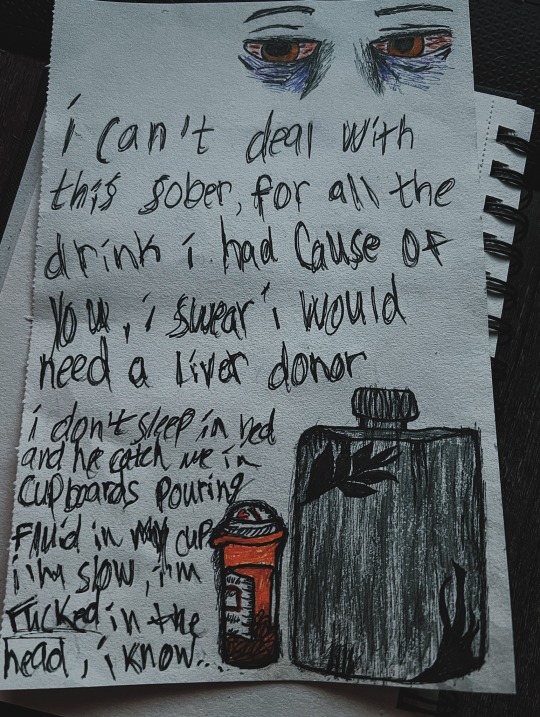 i can't deal with
this sober, for all the
drink i had cause of
you, i swear i would
need a liver donor
i don't sleep in bed
and he catch me in
cupboards pouring
fluid in my cup
i'm slow, i'm
fucked in the
head, i know...